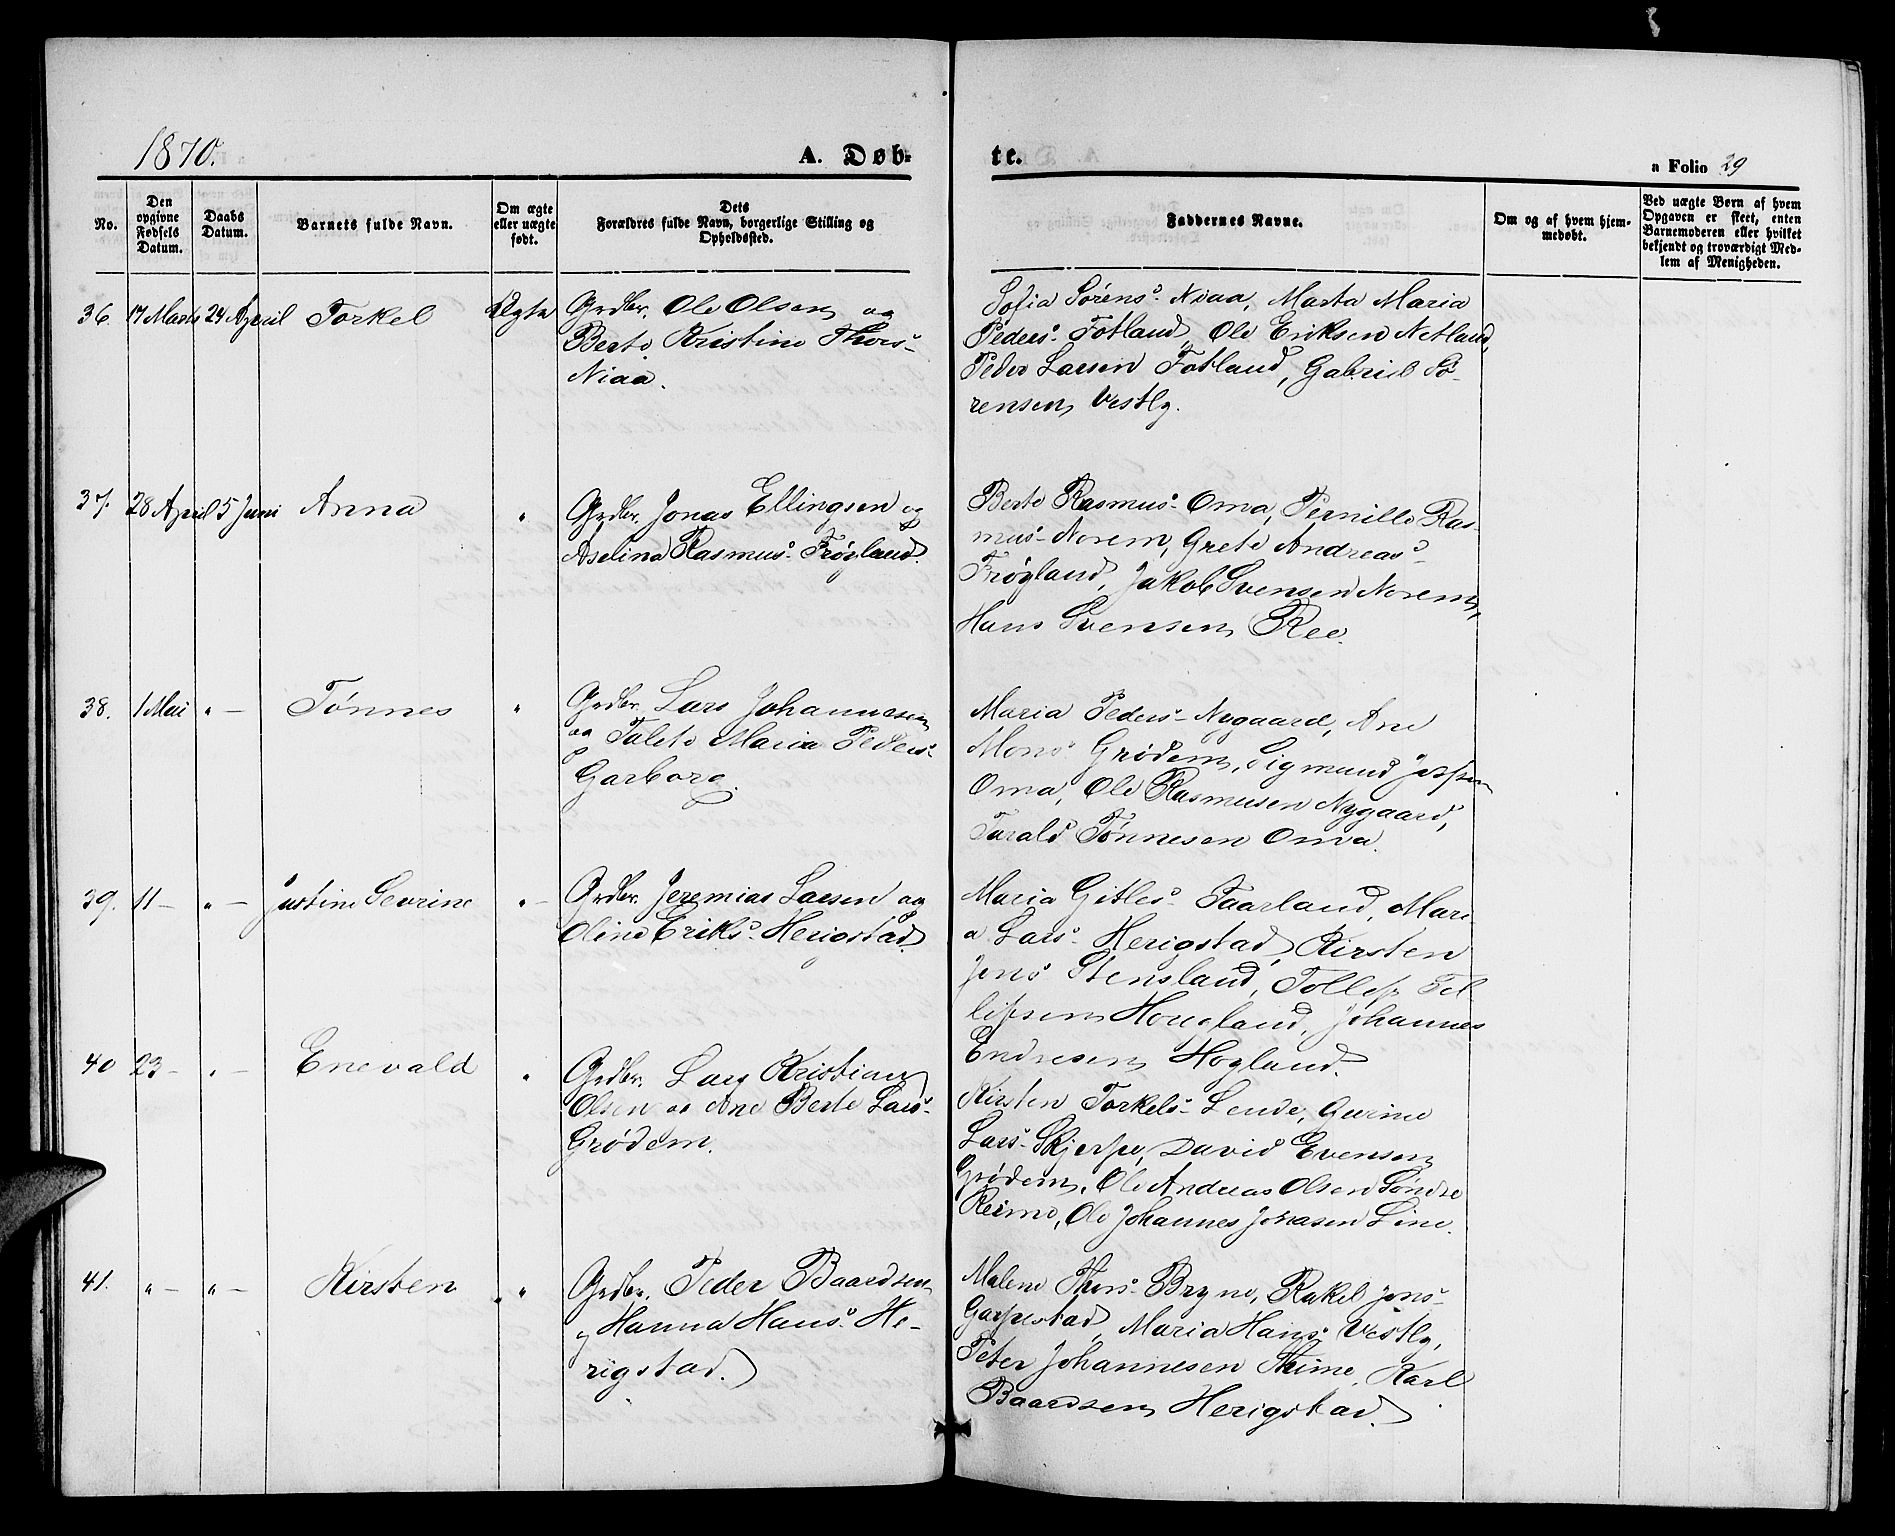 1870.
A. Døb-
te.
a Folio 29
No.
Den opgivne Fødsels Datum.
Daabs Datum.
Barnets fulde Navn.
Om ægte eller uægte født.
Dets Forældres fulde Navn, borgerlige Stilling og Opholdssted.
Faddernes Navne.
Om og af hvem hjemmedøbt.
Ved uægte Børn af hvem Opgaven er skeet, enten Barnemoderen eller hvilket bekjendt og troværdigt Medlem af Menigheden.
36. 17 Marts 24 April Torkel Ægte
Grdbr. Ole Olsen og
Berte Kristine Thors-
Niaa.
Sofia Sørens- Niaa, Marta Maria
Peders- Fotland, Ole Eriksen Netland,
Peder Larsen Fotland, Gabriel Sø-
rensen Vestly.
37. 28 April 5 Juni Anna "
Grdbr. Jonas Ellingsen og
Aselina Rasmus- Frøyland.
Berte Rasmus- Oma, Pernille Ras-
mus- Norem, Grete Andreas-
Frøyland, Jakob Svensen Norem,
Hans Svensen Ree.
38. 1 Mai " - Tønnes "
Grdbr. Lars Johannesen
og Talete Maria Peders-
Garborg.
Maria Peders- Nygaard, Ane
Mons- Grødem, Sigmund Jespersen
Oma, Ole Rasmusen Nygaard,
Tarald Tønnesen Oma.
39. 11 - " - Justine Sevrine " -
Grdbr. Jeremias Larsen og
Oline Eriks- Herigstad.
Maria Gitles- Taarland, Mari
a Lars- Herigstad, Kirsten
Jens- Stensland, Tollef Tol
lefsen Houeland, Johannes
Endresen Hogland.
40 23 - " - Enevald "
Grdbr. Lars Kristian
Olsen og Ane Berte Lars-
Grødem.
Kirsten Torkels- Lende, Gurine
Lars- Skjerpe, David Evensen
Grødem, Ole Andreas Olsen Søndre
Reime, Ole Johannes Jonasen Line.
41. " - " - Kirsten "
Grdbr. Peder Baardsen
og Hanna Hans- He-
rigstad.
Malene Thors- Bryne, Rakel Jens-
Garpestad, Maria Hans- Vestly,
Peter Johannesen Thime, Karl
Baardsen Herigstad.